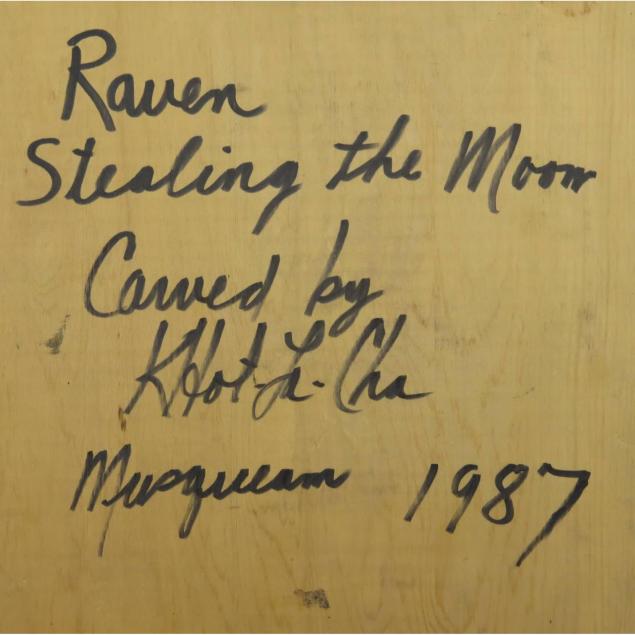 Raven
Stealing the Moon
Carved by
KHot-La-Cha
Musqueam 1987